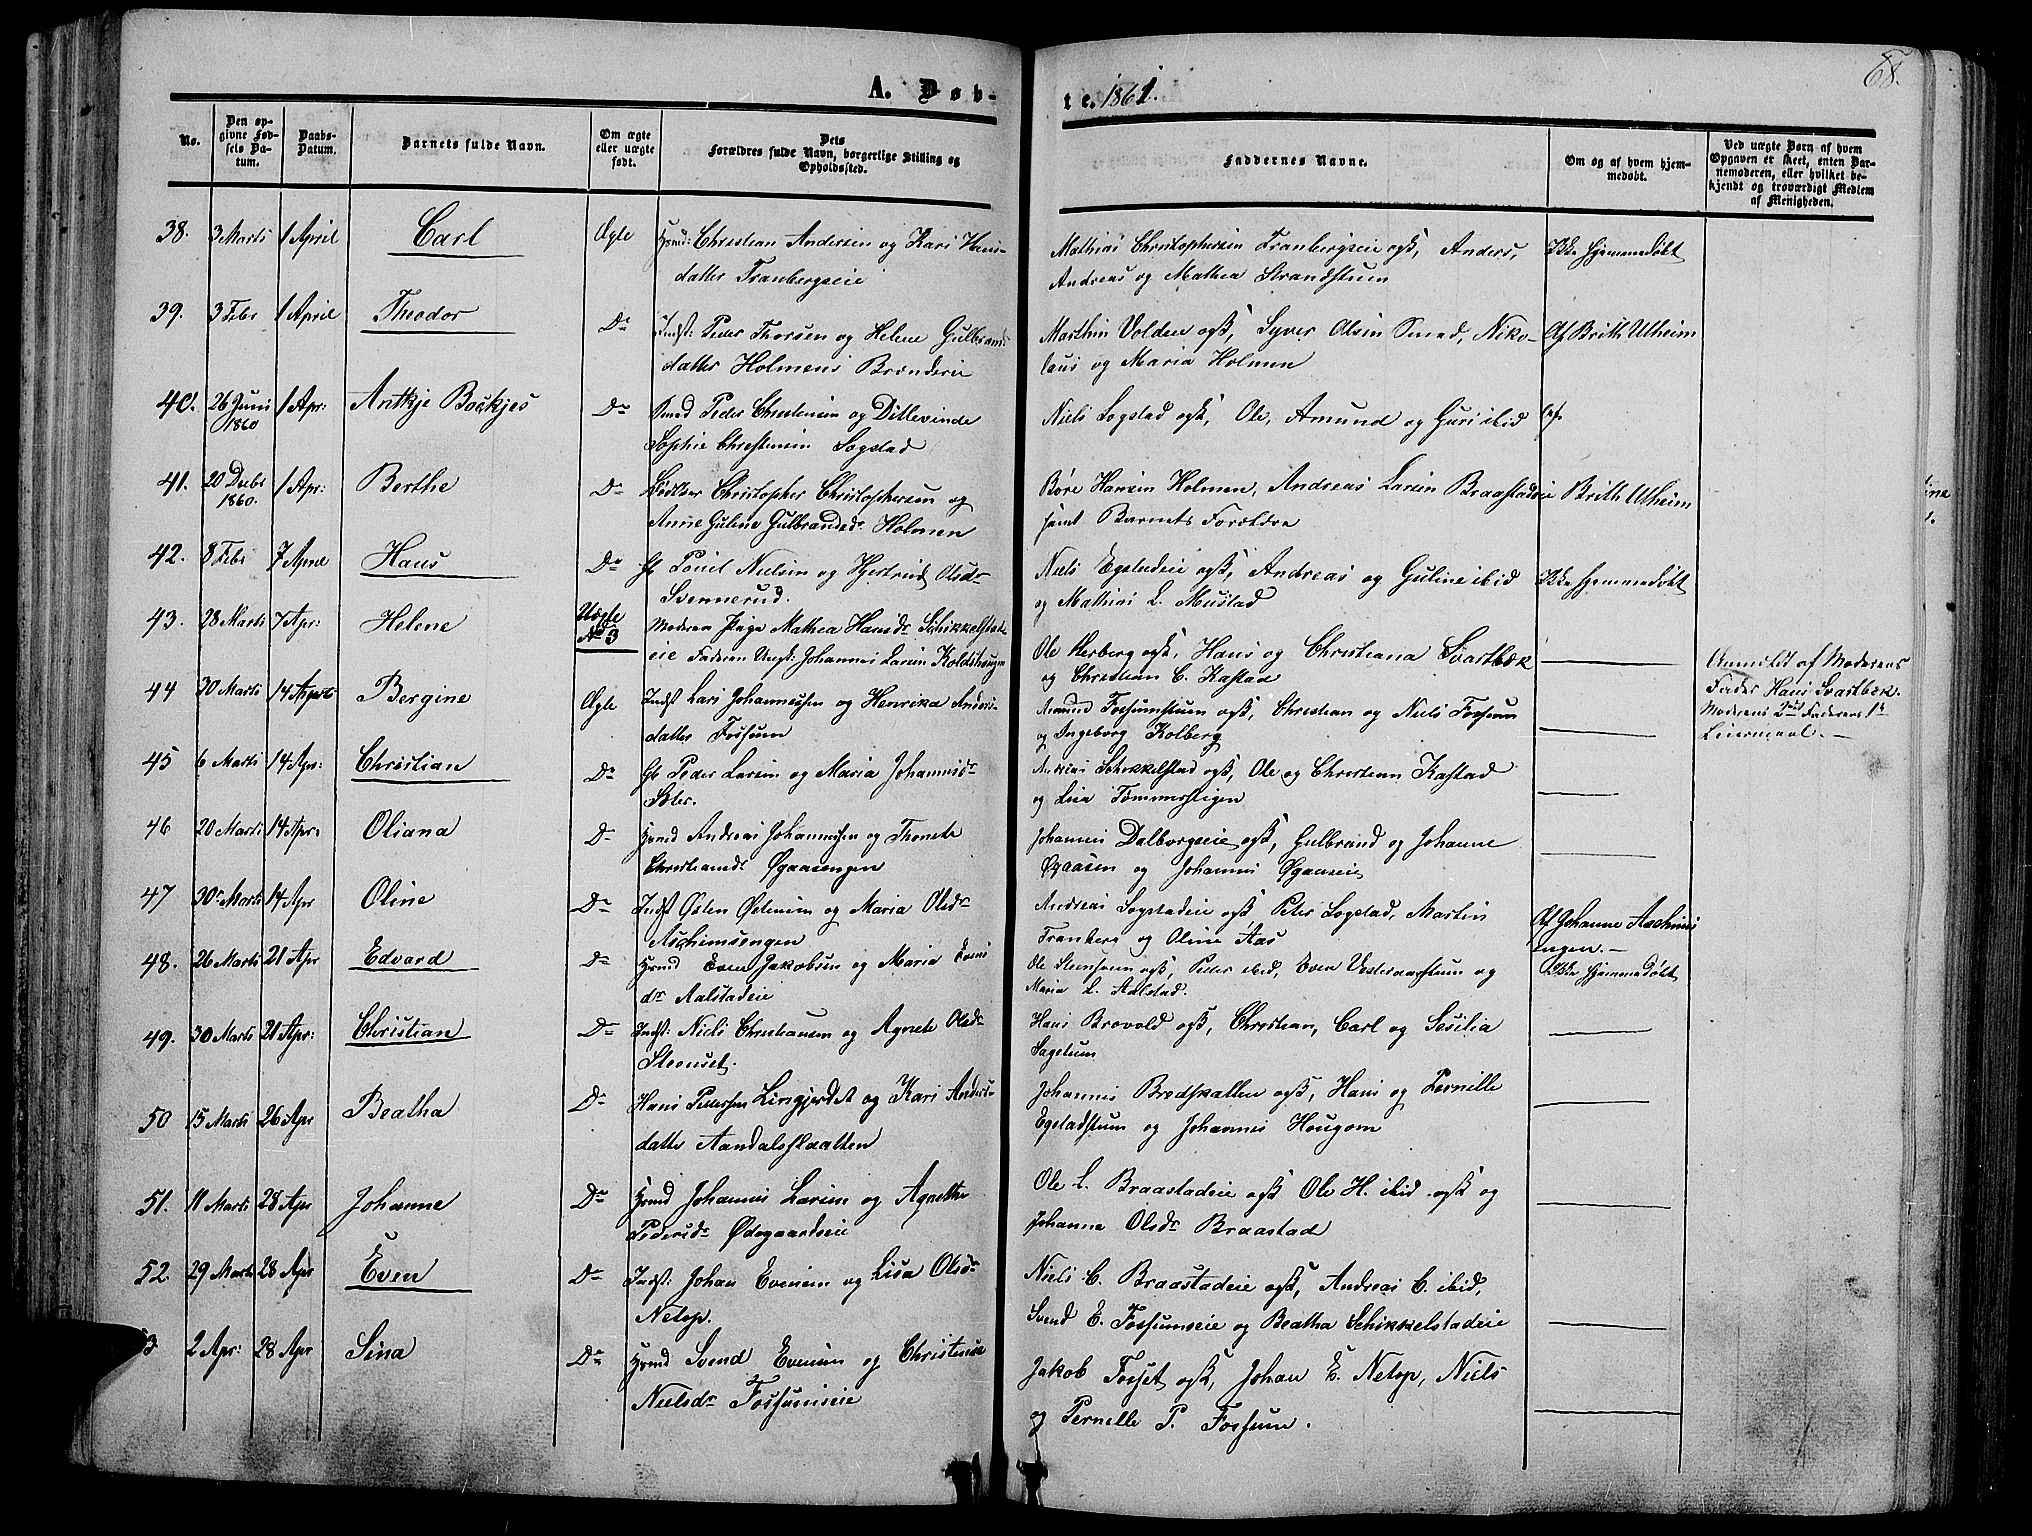 A. Døb-
te. 1861.
68.
No.
Den op-
givne Fød-
sels Da-
tum.
Daabs-
Datum.
Barnets fulde Navn.
Om ægte
eller uægte
født.
Dets
Forældres fulde Navn, borgerlige Stilling og
Opholdssted.
Faddernes Navne.
Om og af hvem hjem-
medøbt.
Ved uægte Børn af hvem
Opgaven er skeet, enten Bar-
nemoderen, eller hvilket be-
kjendt og troværdigt Medlem
af Menigheden.
38. 3 Marts 1 April Carl Ægte Hmd: Christian Andersen og Kari Hans-
datter Tranbergseie
Mathias Christophersen Tranbergseie ogsk, Anders,
Andreas og Mathea Strandstuen
Ikke hjemmedøbt
39. 3 Febr 1 April Theodor Do Indst: Peder Thorsen og Helene Gulbrands
datter Holmens Brænderie
Marthin Volden ogsk, Syver Olsen Smed, Niko-
laus og Maria Holmen
Af Brith Ulheim
40. 26 Juni 1860 1 Apr: Antkje Boekjes Do Smed Peder Christensen og Ditlevinde
Sophie Christensen Sogstad
Niels Sogstad ogsk, Ole, Amund og Guri ibid
41. 20 Decbr 1860. 1 Apr: Berthe Do Christopher Christophersen og
Anne Guline Gulbrandsdr Holmen
Børe Hansen Holmen, Andreas Larsen Braastadeie
samt Barnets Forældre
Brith Ulheim
42. 8 Febr 7 April Hans Do Gb Poul Nielsen og Hjertrud Olsdr
Svennerud.
Niels Egstadeie ogsk, Andreas og Guline ibid
og Mathias L. Mustad
Ikke hjemmedøbt
43. 28 Marts 7 Apr: Helene Uægte No 3 Moderen Pige Mathea Hansdr Schikkelstad-
eie Faderen Ungk: Johannes Larsen Koldshaugen
Ole Herberg ogsk, Hans og Christiana Svartbæk
og Christian C. Kastad
Anmeldt af Moderens
Fader Hans Svartbæk.
Moderens 3die Faderens 1te
Leiermaal. —
44 30 Marts 14 Aprils Bergine Ægte Indst Lars Johannessen og Henrika Anders-
datter Fossum
Amund Fossumstuen ogsk, Christian og Niels Fossum
og Ingeborg Kolberg
45 6 Marts 14 Apr: Christian Do Gb Peder Larsen og Maria Johannesdr
Andreas Schikkelstad ogsk, Ole og Christian Kastad
og Lisa Tømmerstigen
46 20 Marts 14 Apr. Oliana Do Hmd Andreas Johannessen og Thonette
Christiansdr Øgaasengen
Johannes Dalborgseie ogsk, Gulbrand og Johanne
Øgaasen og Johannes Øgaaseie
47 30 Marts 14 Apr Oline Do Indst Østen Østensen og Maria Olsdr
Aschimsengen
Andreas Sogstadeie ogsk Peter Sogstad, Martin
Tranberg og Oline Aas
Af Johanne Aschims
engen. —
48. 26 Marts 21 Apr Edvard Do Hmd Even Jakobsen og Maria Evens
dr Aalstadeie
Ole Steensveen ogsk, Peter ibid, Even Vesteraasstuen og
Maria L. Aalstad.
Ikke hjemmedøbt
49. 30 Marts 21 Apr: Christian Do Indst: Niels Christiansen og Agnete Olsdr
Steenset.
Hans Brovold ogsk, Christian, Carl og Sesilia
Sagstuen
50 15 Marts 26 Apr Beatha Do Hans Pedersen Lingjerdet og Kari Anders-
datter Aandalsskaalten
Johannes Brødskalten ogsk, Hans og Pernille
Egstadstuen og Johannes Hougom
51. 11 Marts 28 Apr Johanne Do Hmd Johannes Larsen og Agnethe
Pedersdr Ødegaardseie
Ole L. Braastadeie ogsk Ole H. ibid ogsk og
Johanna Olsdr Braastad
52. 29 Marts 28 Apr Even Do Indst: Johan Evensen og Lisa Olsdr
Netop.
Niels C. Braastadeie ogsk, Andreas C. ibid,
Svend E. Fossumseie og Beatha Schikkelstadeie
53 2 Apr: 28 Apr Sina Do Hmd Svend Evensen og Christense
Nielsdr Fossumseie
Jakob Fosset ogsk, Johan E. Netop, Niels
og Pernille P. Fossum.